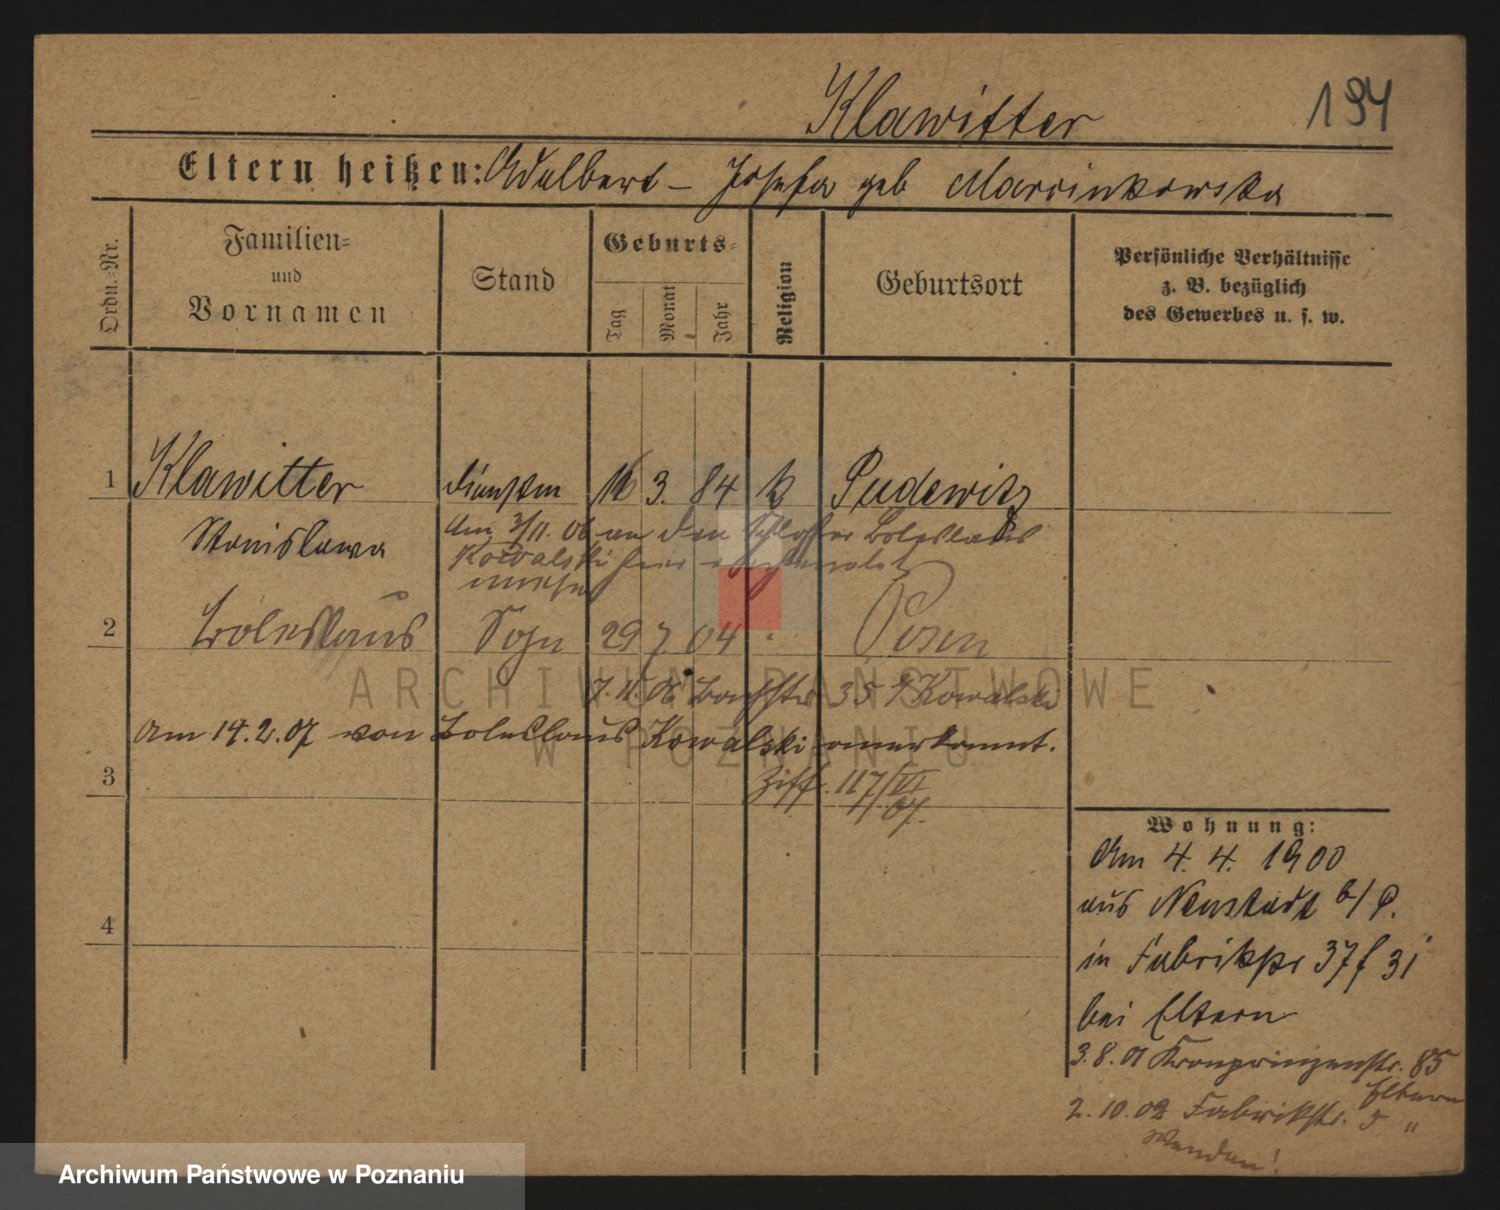 Klawitter 194
Eltern heißen: Adalbert – Josefa geb Marcinkowska
Ordn.=Nr.
Familien=
und
Vornamen
Stand
Geburts=
Tag
Monat
Jahr
Religion
Geburtsort
Persönliche Verhältnisse
z. B. bezüglich
des Gewerbes u. s. w.
1 Klawitter 16 3. 84 k Pudewitz
Stanislawa
Am 3/11. 06 an den Schlosser Boleslaus
Kowalski hier
2 Boleslaus Sohn 29 7 04 Posen
7. 11. 06 35 Kowalski
Am 14. 2. 07 von Boleslaus Kowalski anerkannt.
3
Ziff. 117/VI
07.
4
Wohnung:
Am 4. 4. 1900
aus Neustadt b/P.
in Fabrikstr 37 f 31
bei Eltern
3. 8. 01 Kronprinzenstr. 85
Eltern
2. 10. 02 Fabrikstr. 5 "
Wenden!
ARCHIWUM PAŃSTWOWE
W POZNANIU
Archiwum Państwowe w Poznaniu